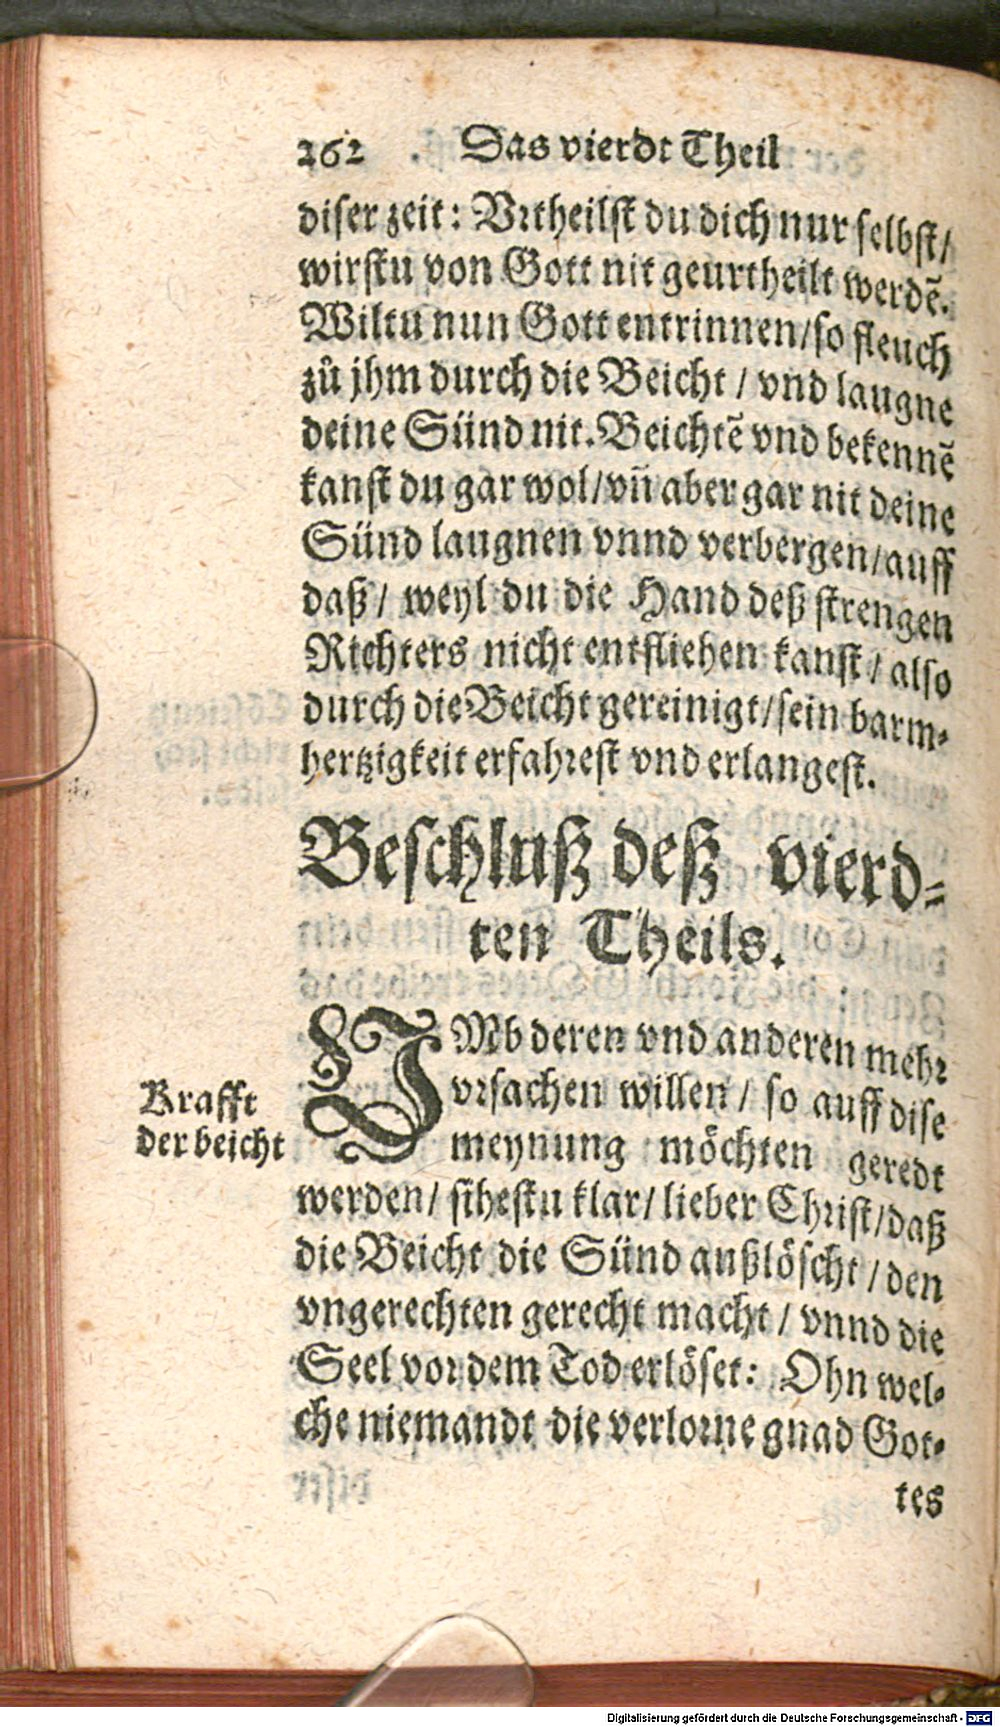 262 Das vierdt Theil
diser zeit: Vrtheilst du dich nur selbst/
wirstu von Gott nit geurtheilt werdẽ.
Wiltu nun Gott entrinnen/so fleuch
zů jhm durch die Beicht / vnd laugne
deine Sünd nit. Beichtẽ vnd bekennẽ
kanst du gar wol/vñ aber gar nit deine
Sünd laugnen vnnd verbergen/auff
daß / weyl du die Hand deß strengen
Richters nicht entfliehen kanst / also
durch die Beicht gereinigt/sein barm-
hertzigkeit erfahrest vnd erlangest.
Beschluß deß vierd-
ten Theils.
VMb deren vnd anderen mehr
vrsachen willen / so auff dise
Krafft
der beicht
meynung möchten geredt
werden/ sihestu klar/ lieber Christ/daß
die Beicht die Sünd außlöscht / den
vngerechten gerecht macht / vnnd die
Seel vor dem Tod erlöset: Ohn wel-
che niemandt die verlorne gnad Got-
tes
Digitalisierung gefördert durch die Deutsche Forschungsgemeinschaft - DFG